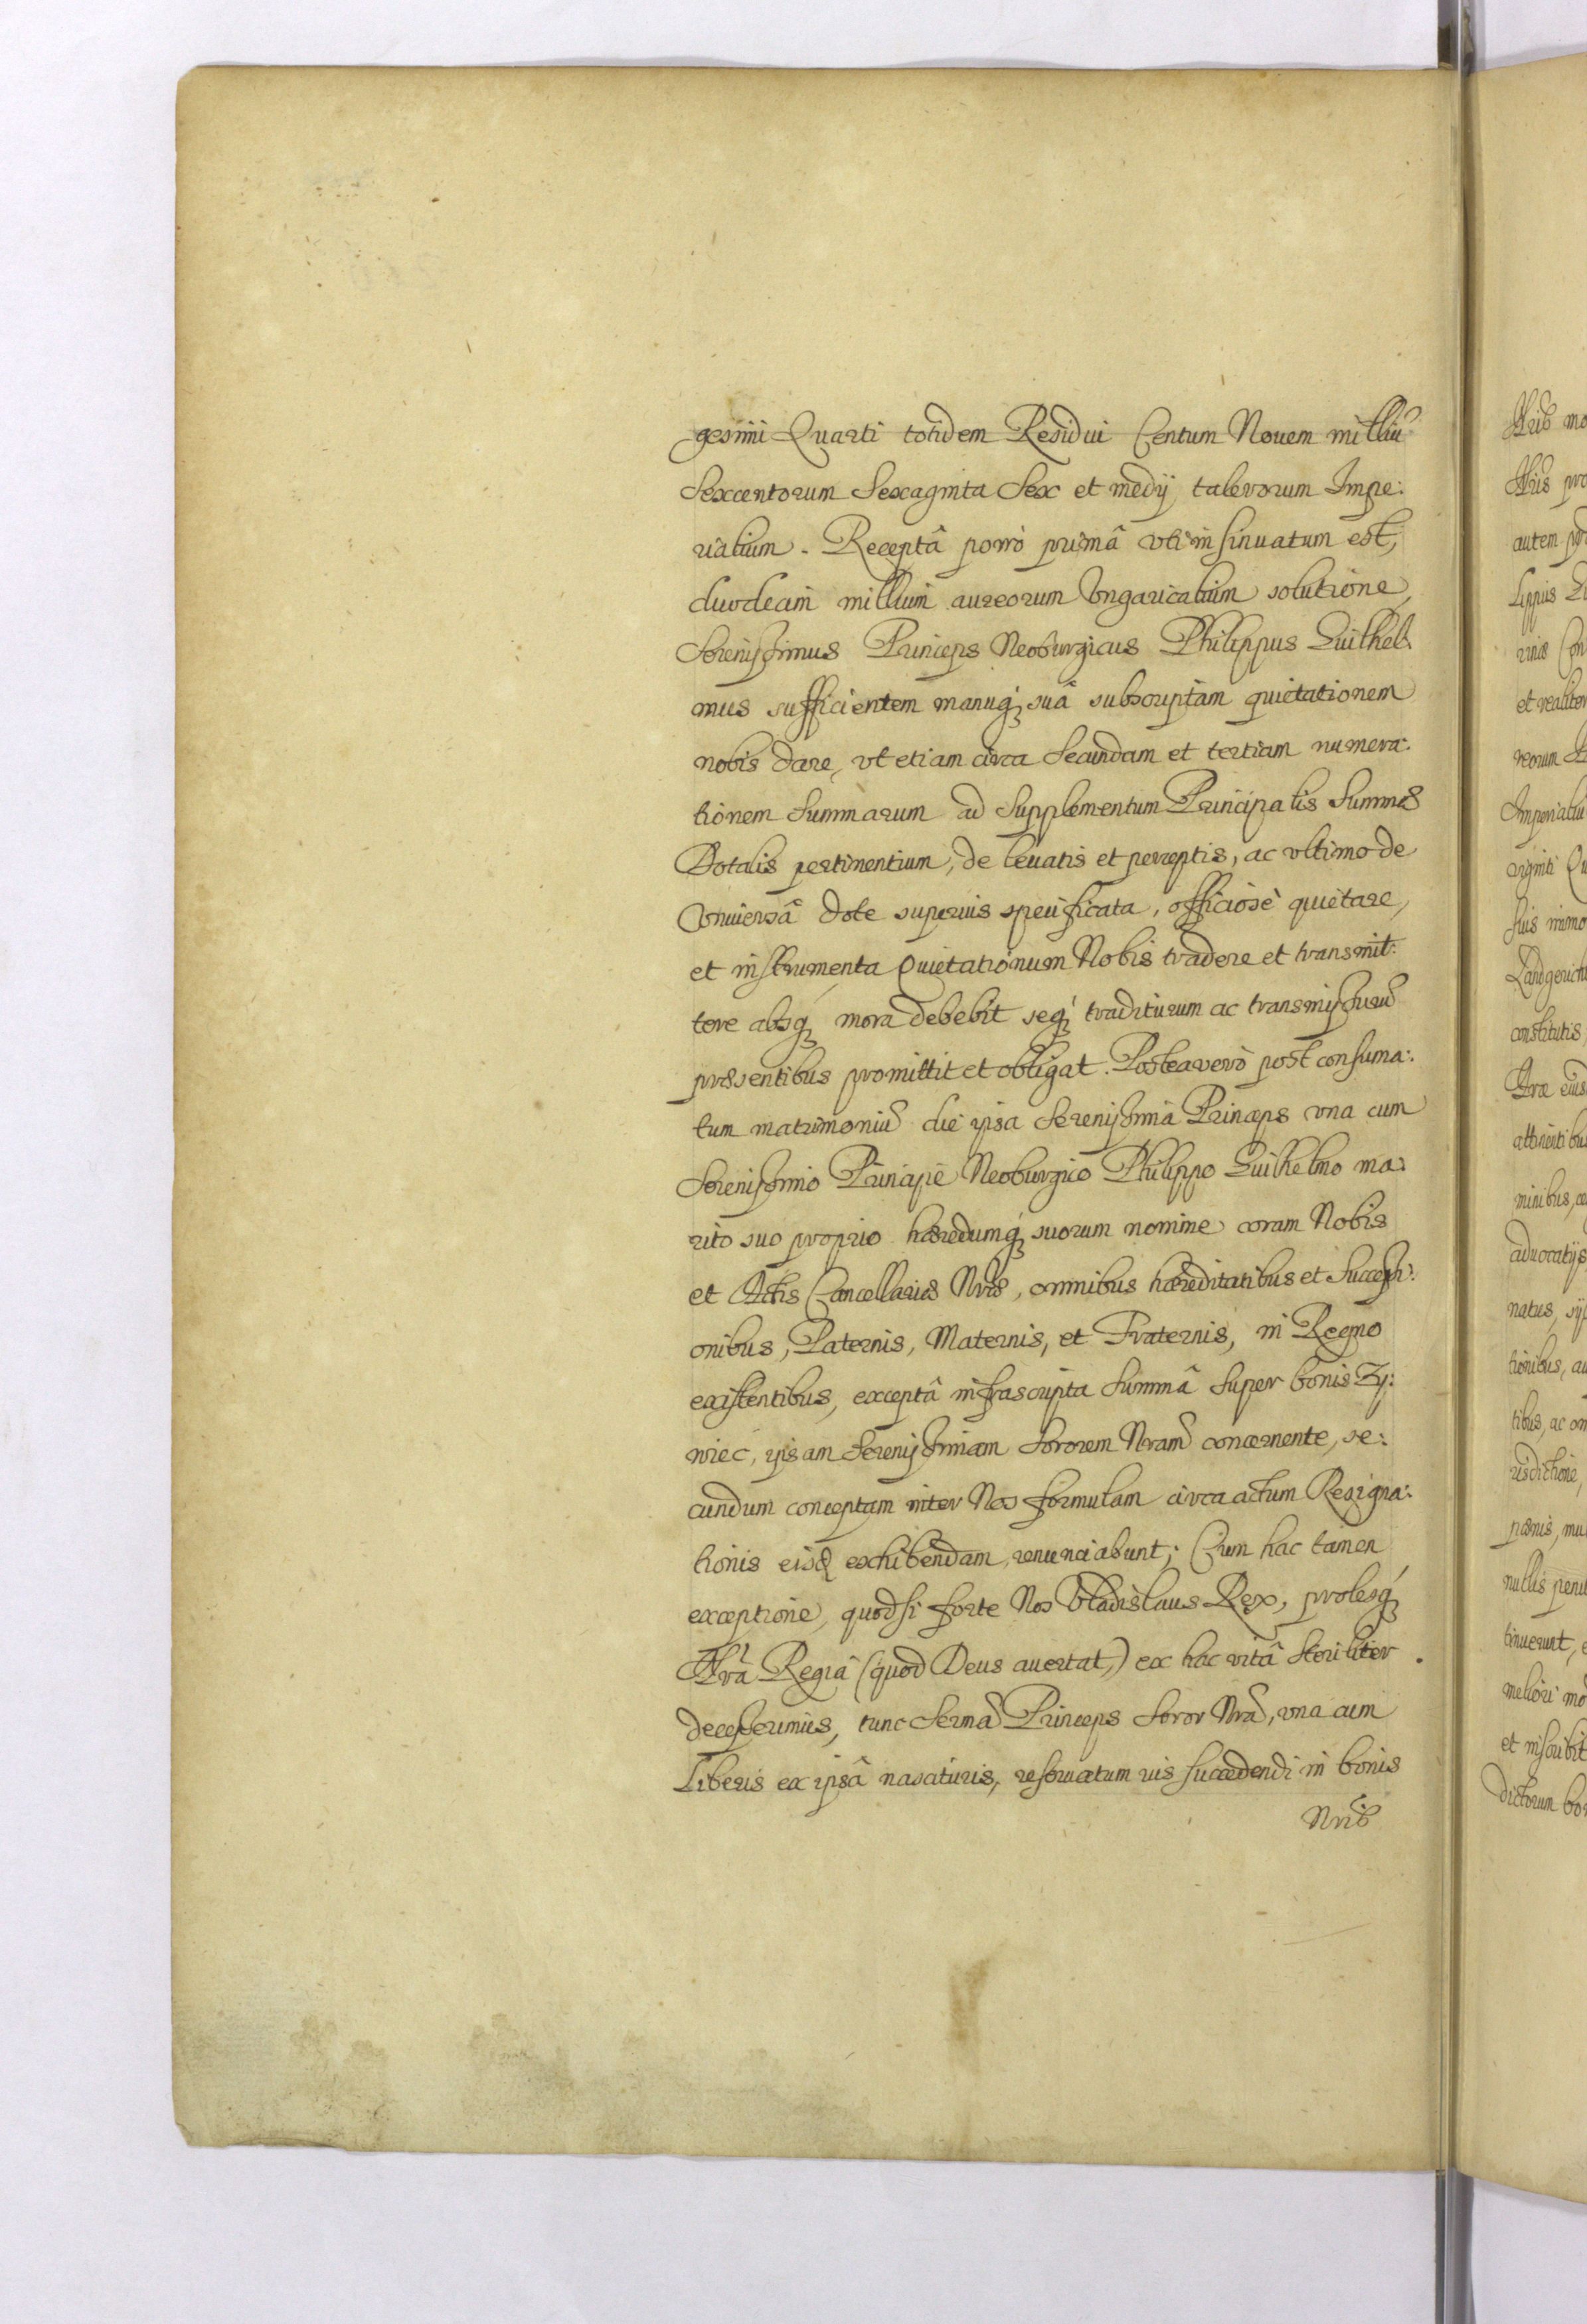 gesimi Quarti totidem Residui Centum Nouem milliũ
Sexcentorum Sexaginta Sex et medij talerorum Impe:
rialium. Receptâ porrò primâ vti insinuatum est,
duodecim millium aureorum Vngaricalium solutione,
Serenissimus Princeps Neoburgicus Philippus Guilhel
mus sufficientem manuq́ suâ subscriptam quietationem
nobis dare, vt etiam circa Secundam et tertiam numera:
tionem Summarum ad Supplementum Principalis Summæ
Dotalis pertinentium, de leuatis et perceptis, ac vltimo de
Vniuersâ dote superius specificata, officiosè quietare,
et instrumenta Quietationum Nobis tradere et transmit:
tere absq́ mora debebit seq́ traditurum ac transmissurũ
præsentibus promittit et obligat. Postea verò post consuma:
tum matrimoniũ die ipsa Serenissima Princeps vna cum
Serenissimo Principe Neoburgico Philippo Guilhelmo ma:
rito suo proprio hæredumq́ suorum nomine coram Nobis
et Actis Cancellariæ Nræ, omnibus hæreditatibus et Successi:
onibus, Paternis, Maternis, et Fraternis, in Regno
existentibus, exceptâ infrascripta Summâ Super bonis Zy:
wiec, ipsam Serenissimam Sororem Nram̃ concernente, se:
cundum conceptam inter Nos formulam circa actum Resigna:
tionis eisd exhibendam, renunciabunt; Cum hac tamen
exceptione, quod si forte Nos Vladislaus Rex, prolesq́
Nrã Regiâ (quod Deus auertat,) ex hac vitâ Steriliter
decesserimus, tunc Serma Princeps Soror Nra, vna cum
Liberis ex ipsâ nascituris, reseruatum ius succedendi in bonis
Nris